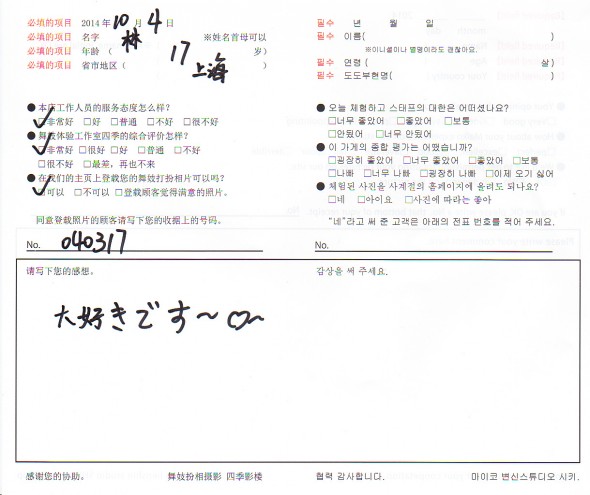 必填的项目 2014 年 10 月 4 日
必填的项目 名字 林 ※姓名首母可以
必填的项目 年龄（ 17 岁）
必填的项目 省市地区（ 上海 ）
●本店工作人员的服务态度怎么样？
☑非常好 □好 □普通 □不好 □很不好
●舞妓体验工作室四季的综合评价怎样？
☑非常好 □很好 □好 □普通 □不好
□很不好 □最差，再也不来
●在我们的主页上登载您的舞妓打扮相片可以吗？
☑可以 □不可以 □登载顾客觉得满意的照片。
同意登载照片的顾客请写下您的收据上的号码。
No. 040317
请写下您的感想。
大好きです〜♡〜
感谢您的协助。 舞妓扮相摄影 四季影楼
필수 년 월 일
필수 이름( )
※이니셜이나 별명이라도 괜찮아요.
필수 연령 ( 살)
필수 도도부현명( )
● 오늘 체험하고 스태프의 대한은 어떠셨나요?
□너무 좋았어 □좋았어 □보통
□안됬어 □너무 안됬어
● 이 가게의 종합 평가는 어땠습니까?
□굉장히 좋았어 □너무 좋았어 □좋았어 □보통
□나빠 □너무 나빠 □굉장히 나빠 □이제 오기 싫어
● 체험된 사진을 사계절의 홈페이지에 올려도 되나요?
□네 □아이요 □사진에 따라는 좋아
"네"라고 써 준 고객은 아래의 전표 번호를 적어 주세요.
No.
감상을 써 주세요.
협력 감사합니다. 마이코 변신스튜디오 시키.